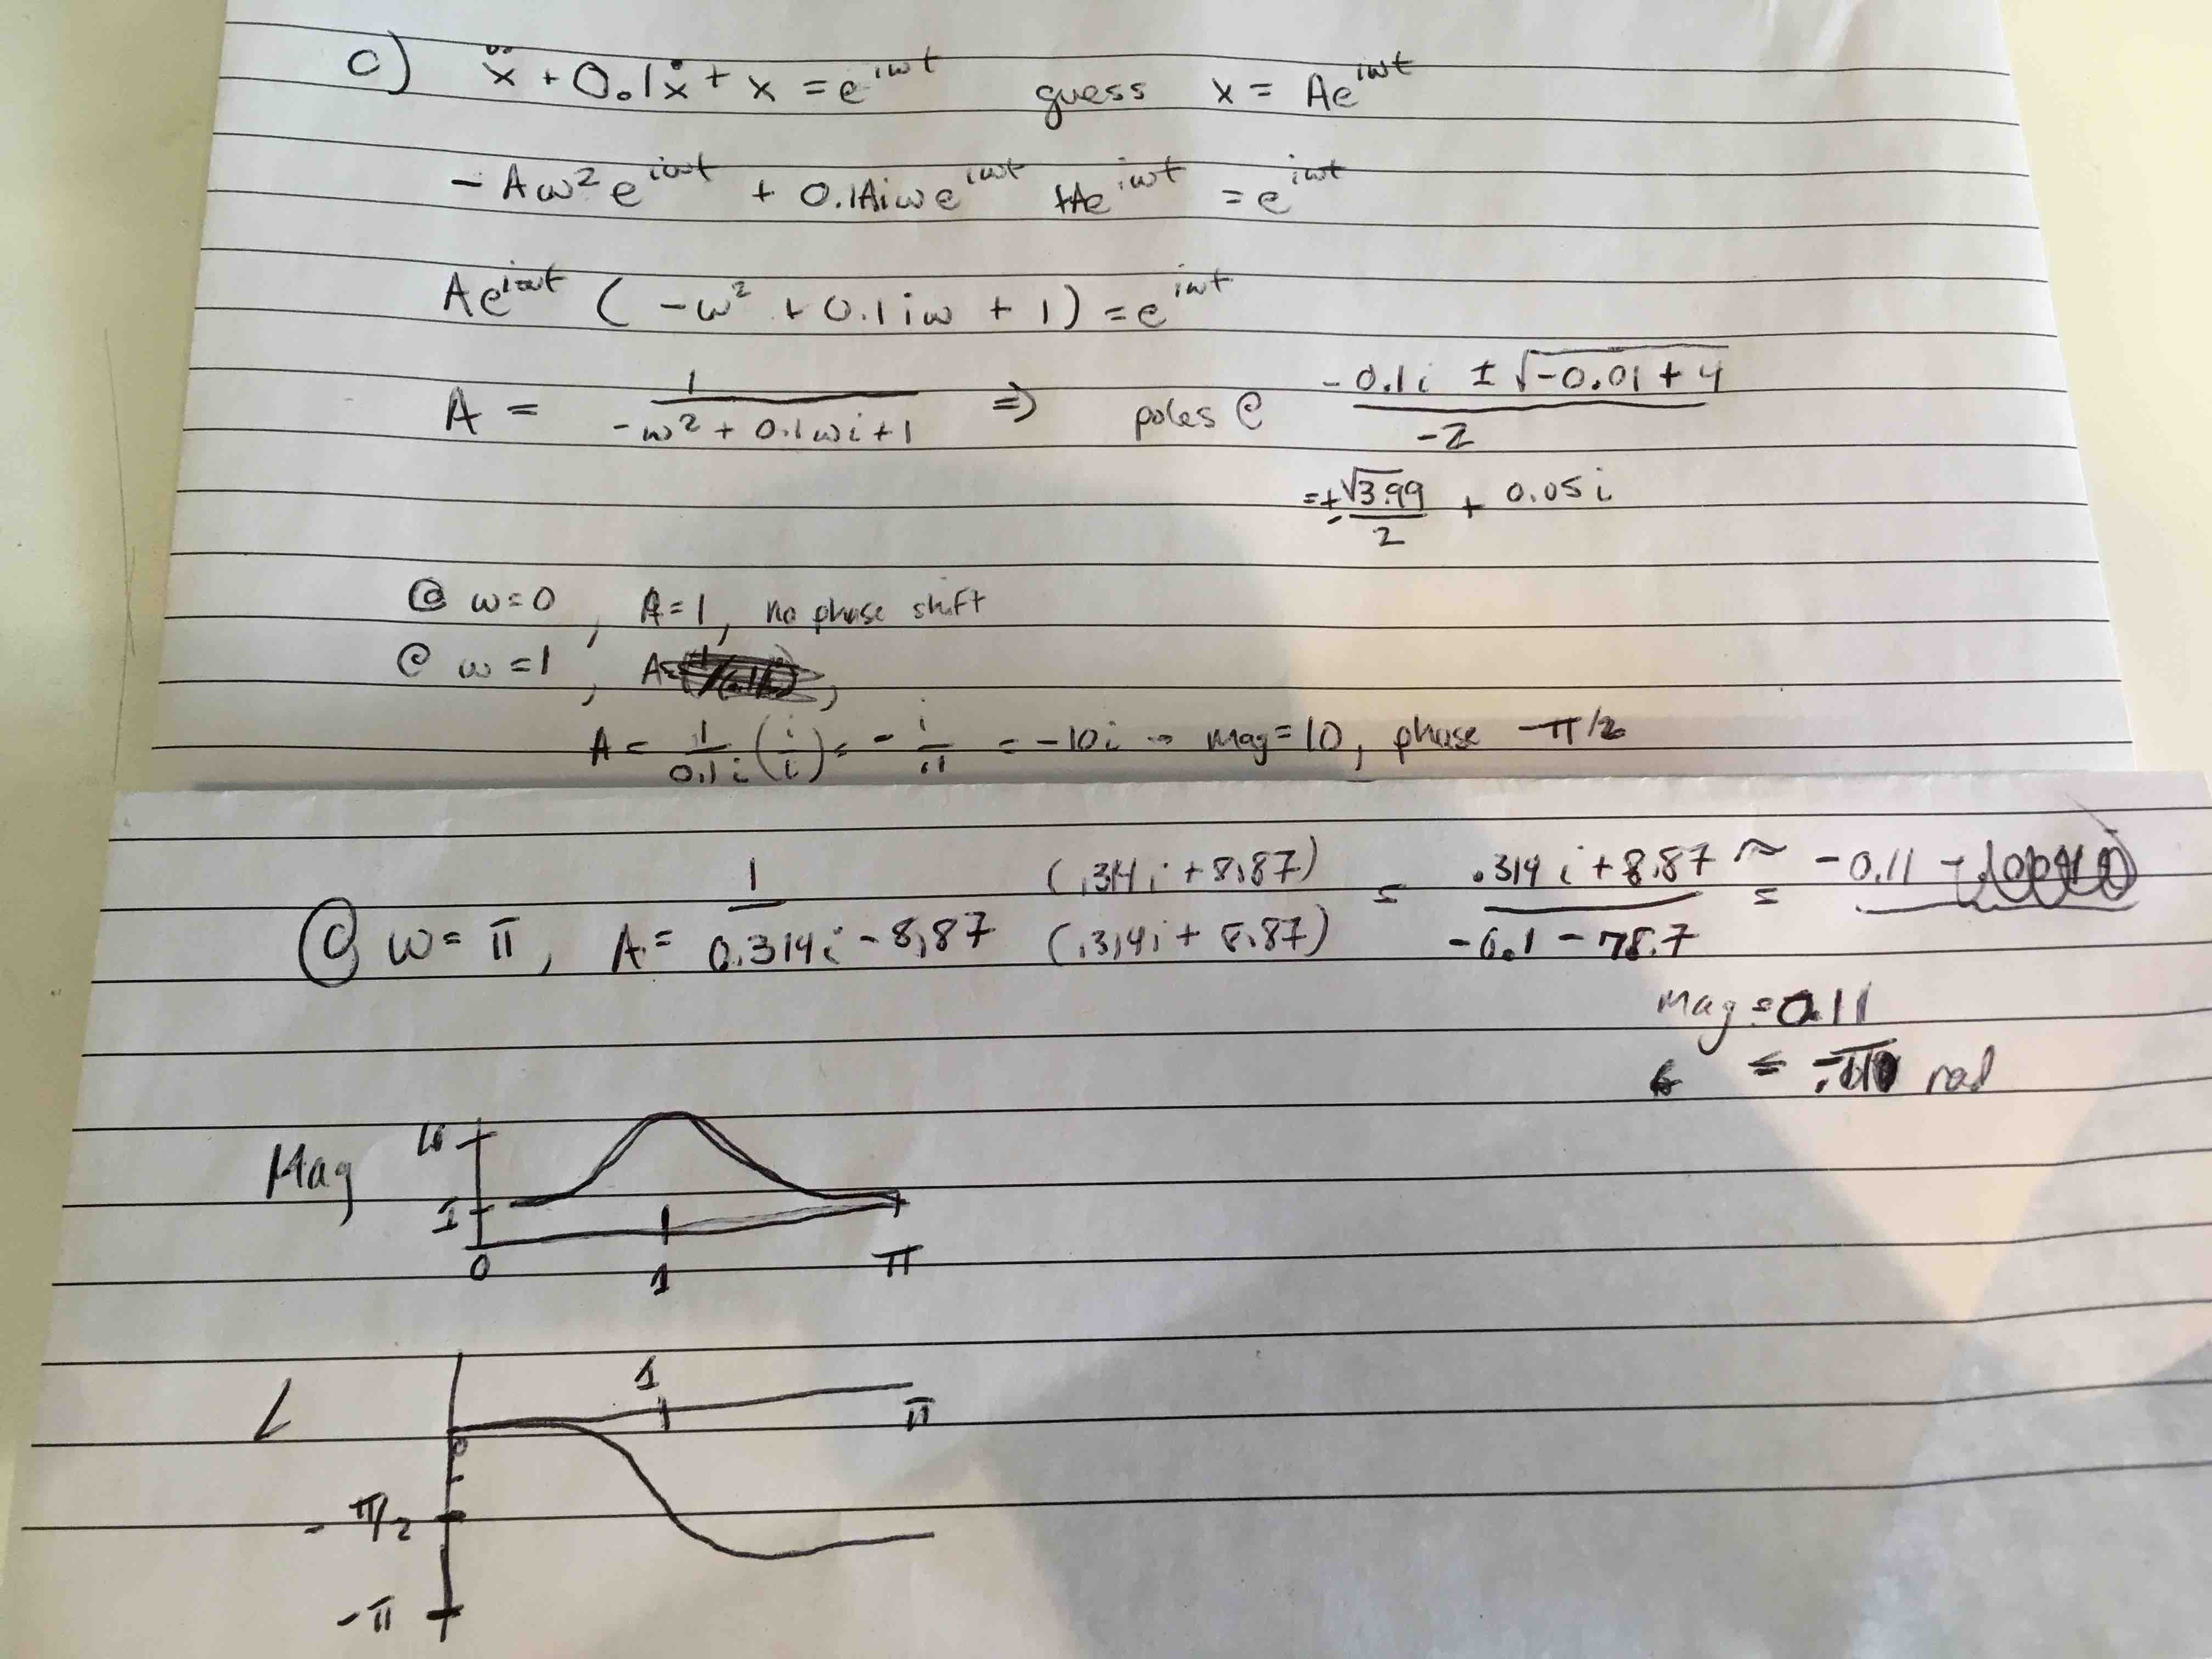 c) ẍ + 0.1ẋ + x = e^{iωt} guess x = Ae^{iωt}
-Aω²e^{iωt} + 0.1Aiωe^{iωt} +Ae^{iωt} = e^{iωt}
Ae^{iωt} (-ω² + 0.1iω + 1) = e^{iωt}
A = 1/(-ω² + 0.1ωi + 1) => poles @ (-0.1i ± √(-0.01 + 4))/-2
= ± √3.99/2 + 0.05i
@ ω=0, A=1, no phase shift
@ ω=1, A=
A = 1/0.1i (i/i) = -i/.1 = -10i → mag=10, phase -π/2
@ ω=π, A= 1/(0.314i - 8.87) (.314i + 8.87)/(.314i + 8.87) = (.314i + 8.87)/(-0.1 - 78.7) ≈ -0.11
Mag = 0.11
= -π rad
Mag
10
1
0 1 π
∠
1
π
0
-π/2
-π